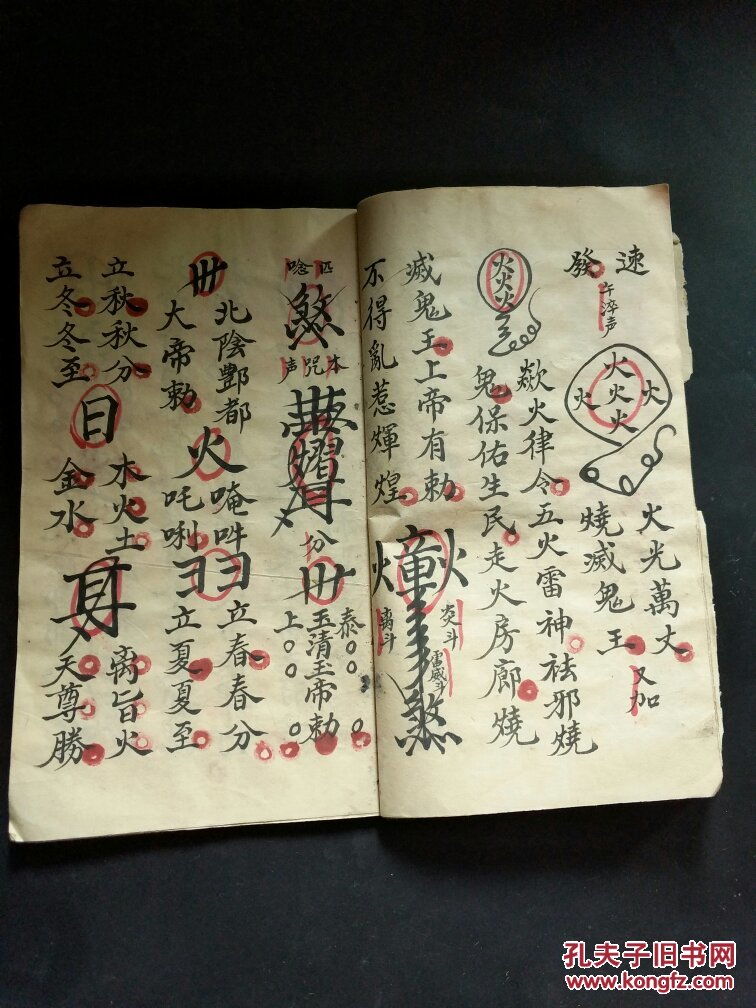 速發
午淬声
火火火火火
火光萬丈
燒滅鬼王
又加
歘火律令五火雷神祛邪燒
鬼保佑生民走火房廊燒
滅鬼王上帝有勅
火
炎斗
雷威斗
离斗
煞
不得亂惹煇煌
唸
本咒声
煞
分
泰○○
玉清玉帝勅○
上○○
北陰酆都
大帝勅
火
唵吽
吒唎
立春春分
立夏夏至
立秋秋分
立冬冬至
日
木火土
金水
离旨火
天尊勝
孔夫子旧书网
www.kongfz.com